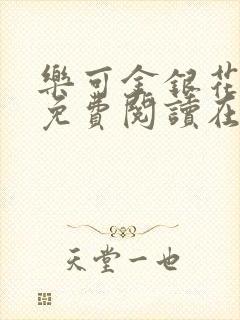 樂可金銀花
免費閱讀在
天堂一也